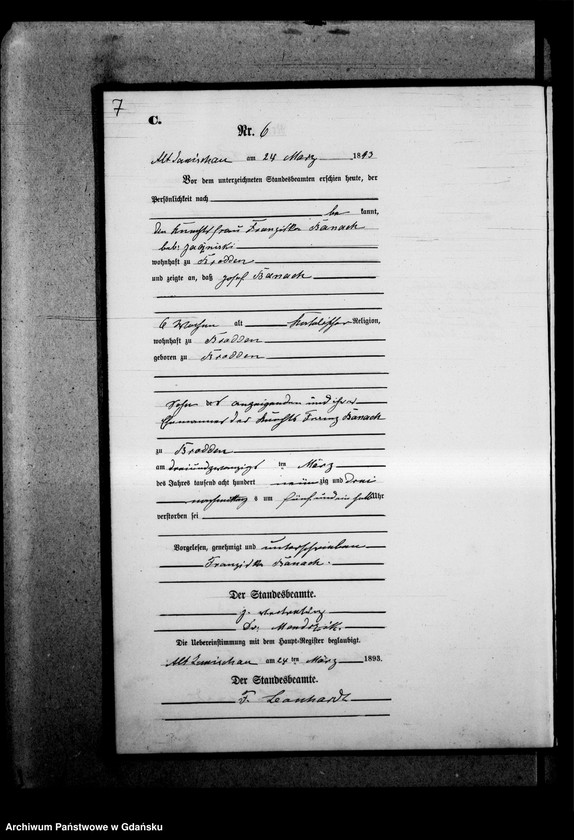 7
C.
Nr. 6
am 24 März 1893
Vor dem unterzeichneten Standesbeamten erschien heute, der
Persönlichkeit nach
be kannt,
frau Franziska Banach
geb:
wohnhaft zu Brodden
und zeigte an, daß Josef Banach
6 Wochen alt katolischer Religion,
wohnhaft zu Brodden
geboren zu Brodden
Sohn der anzeigenden und ihres
Ehemannes des Knechts Franz Banach
zu Brodden
am dreiundzwanzigsten ten März
des Jahres tausend acht hundert neunzig und drei
nachmittag s um fünf und ein halb Uhr
verstorben sei
Vorgelesen, genehmigt und unterschrieben
Franziska Banach.
Der Standesbeamte.
Die Uebereinstimmung mit dem Haupt-Register beglaubigt.
am 24 ten März 1893.
Der Standesbeamte.
F. Leonhardt
Archiwum Państwowe w Gdańsku